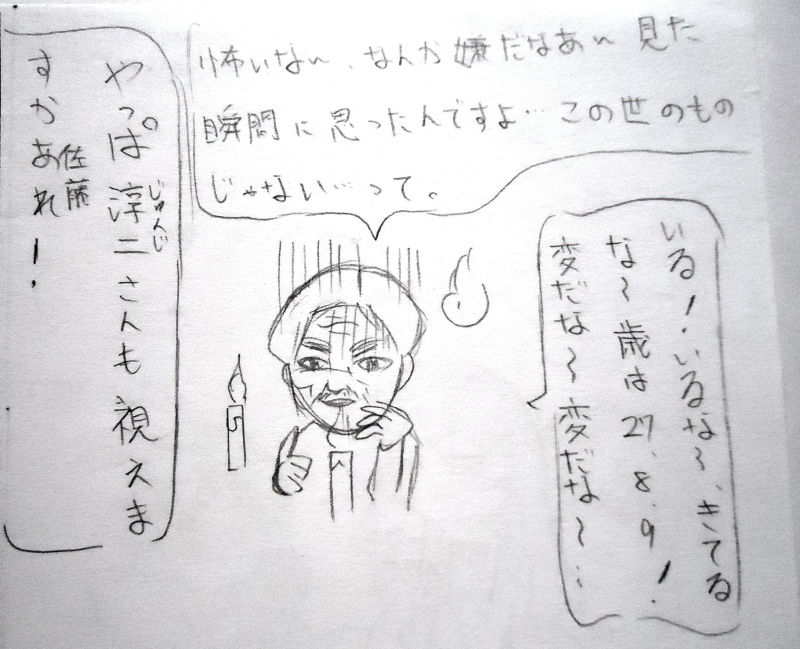 怖いな〜、なんか嫌だなあ〜見た
瞬間に思ったんですよ…この世のもの
じゃない…って。
いる！いるな〜、きてる
な〜歳は27、8、9！
変だな〜変だな〜…
やっぱ淳二さんも視えま
じゅんじ
すかあれ！
佐藤